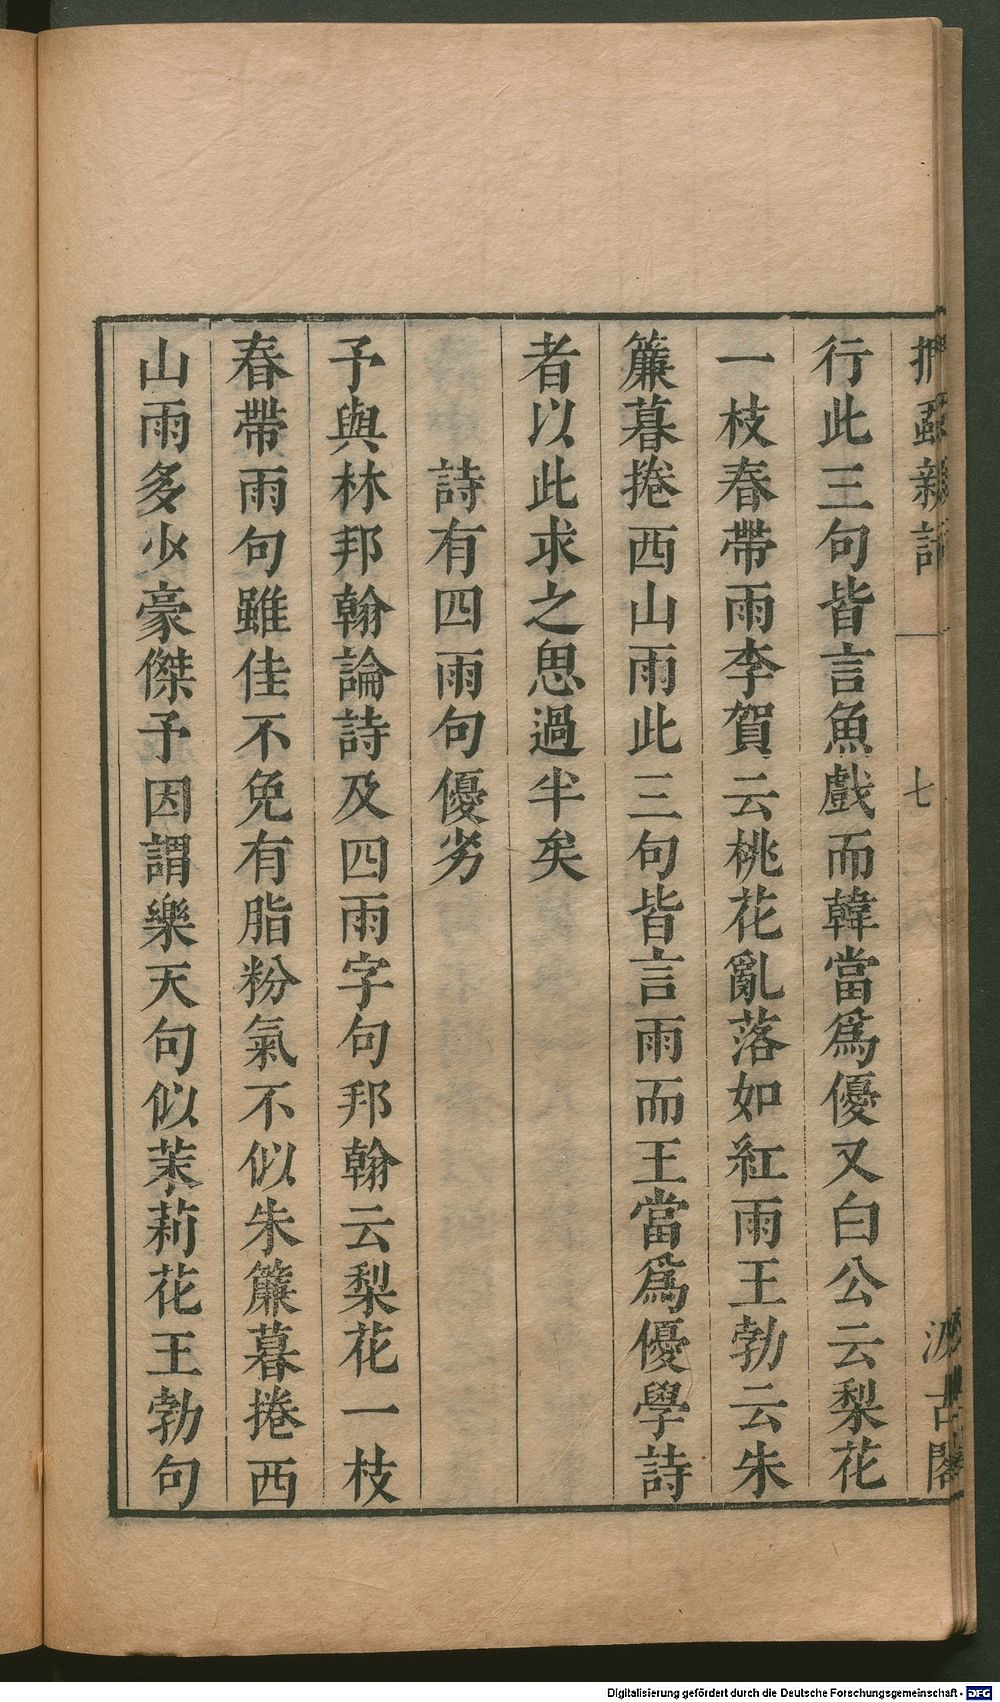 捫蝨新話
七
汲古閣
行此三句皆言魚戲而韓當爲優又白公云梨花
一枝春帶雨李賀云桃花亂落如紅雨王勃云朱
簾暮捲西山雨此三句皆言雨而王當爲優學詩
者以此求之思過半矣
詩有四雨句優劣
予與林邦翰論詩及四雨字句邦翰云梨花一枝
春帶雨句雖佳不免有脂粉氣不似朱簾暮捲西
山雨多少豪傑予因謂樂天句似茉莉花王勃句
Digitalisierung gefördert durch die Deutsche Forschungsgemeinschaft - DFG